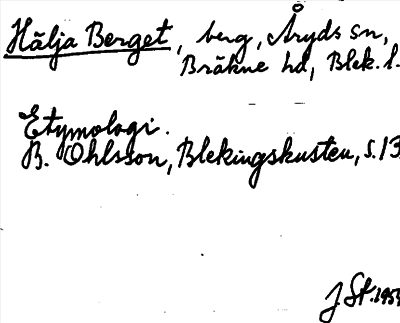 Hälja Berget, berg, Åryds sn,
Bräkne hd, Blek. l.
Etymologi.
B. Ohlsson, Blekingskusten, s. 13
J St. 1954